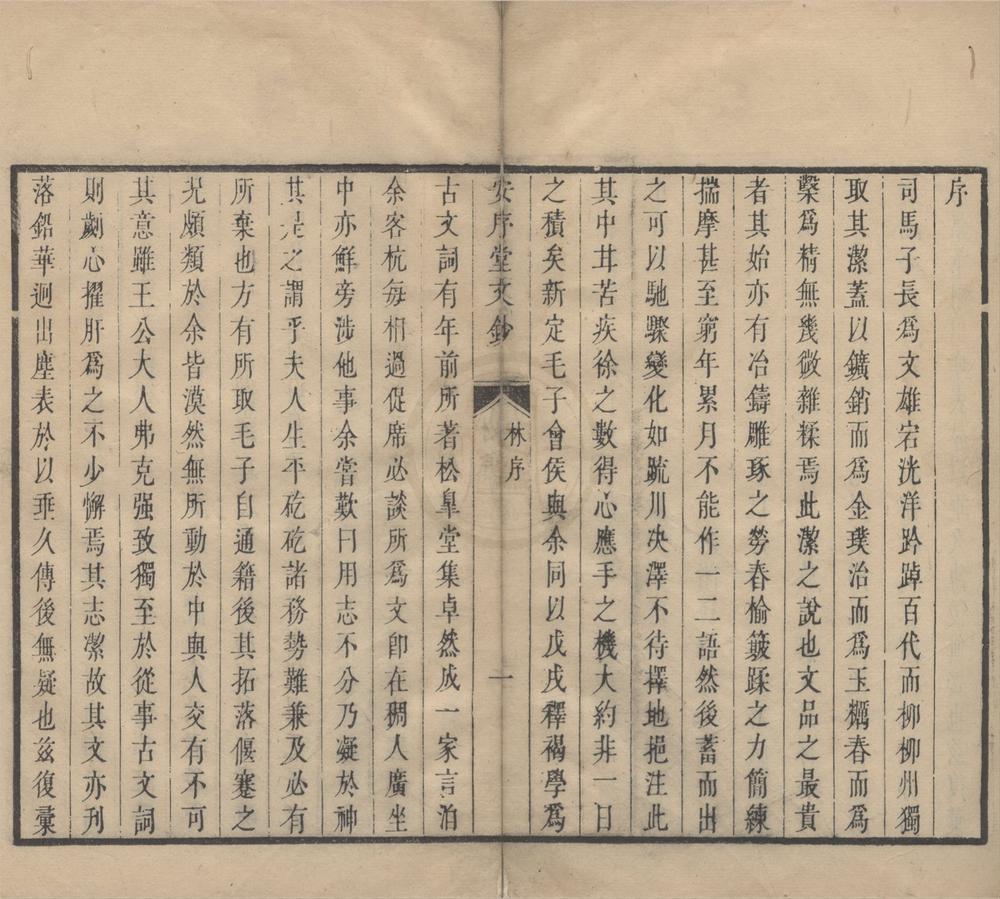 序
司馬子長爲文雄宕洸洋趻踔百代而柳柳州獨
取其潔蓋以鑛銷而爲金璞治而爲玉糲舂而爲
糳爲精無幾微雜糅焉此潔之說也文品之最貴
者其始亦有冶鑄雕琢之勞舂揄簸蹂之力簡練
揣摩甚至窮年累月不能作一二語然後蓄而出
之可以馳驟變化如疏川決澤不待擇地挹注此
其中甘苦疾徐之數得心應手之機大約非一日
之積矣新定毛子會侯與余同以戊戌釋褐學爲
安序堂文鈔
林序
一
古文詞有年前所著松臯堂集卓然成一家言洎
余客杭每相過促席必談所爲文卽在稠人廣坐
中亦鮮旁涉他事余嘗歎曰用志不分乃凝於神
其是之謂乎夫人生平矻矻諸務勢難兼及必有
所棄也方有所取毛子自通籍後其拓落偃蹇之
况頗類於余皆漠然無所動於中與人交有不可
其意雖王公大人弗克强致獨至於從事古文詞
則劌心擢肝爲之不少懈焉其志潔故其文亦刋
落鉛華迥出塵表於以垂久傳後無疑也茲復彙